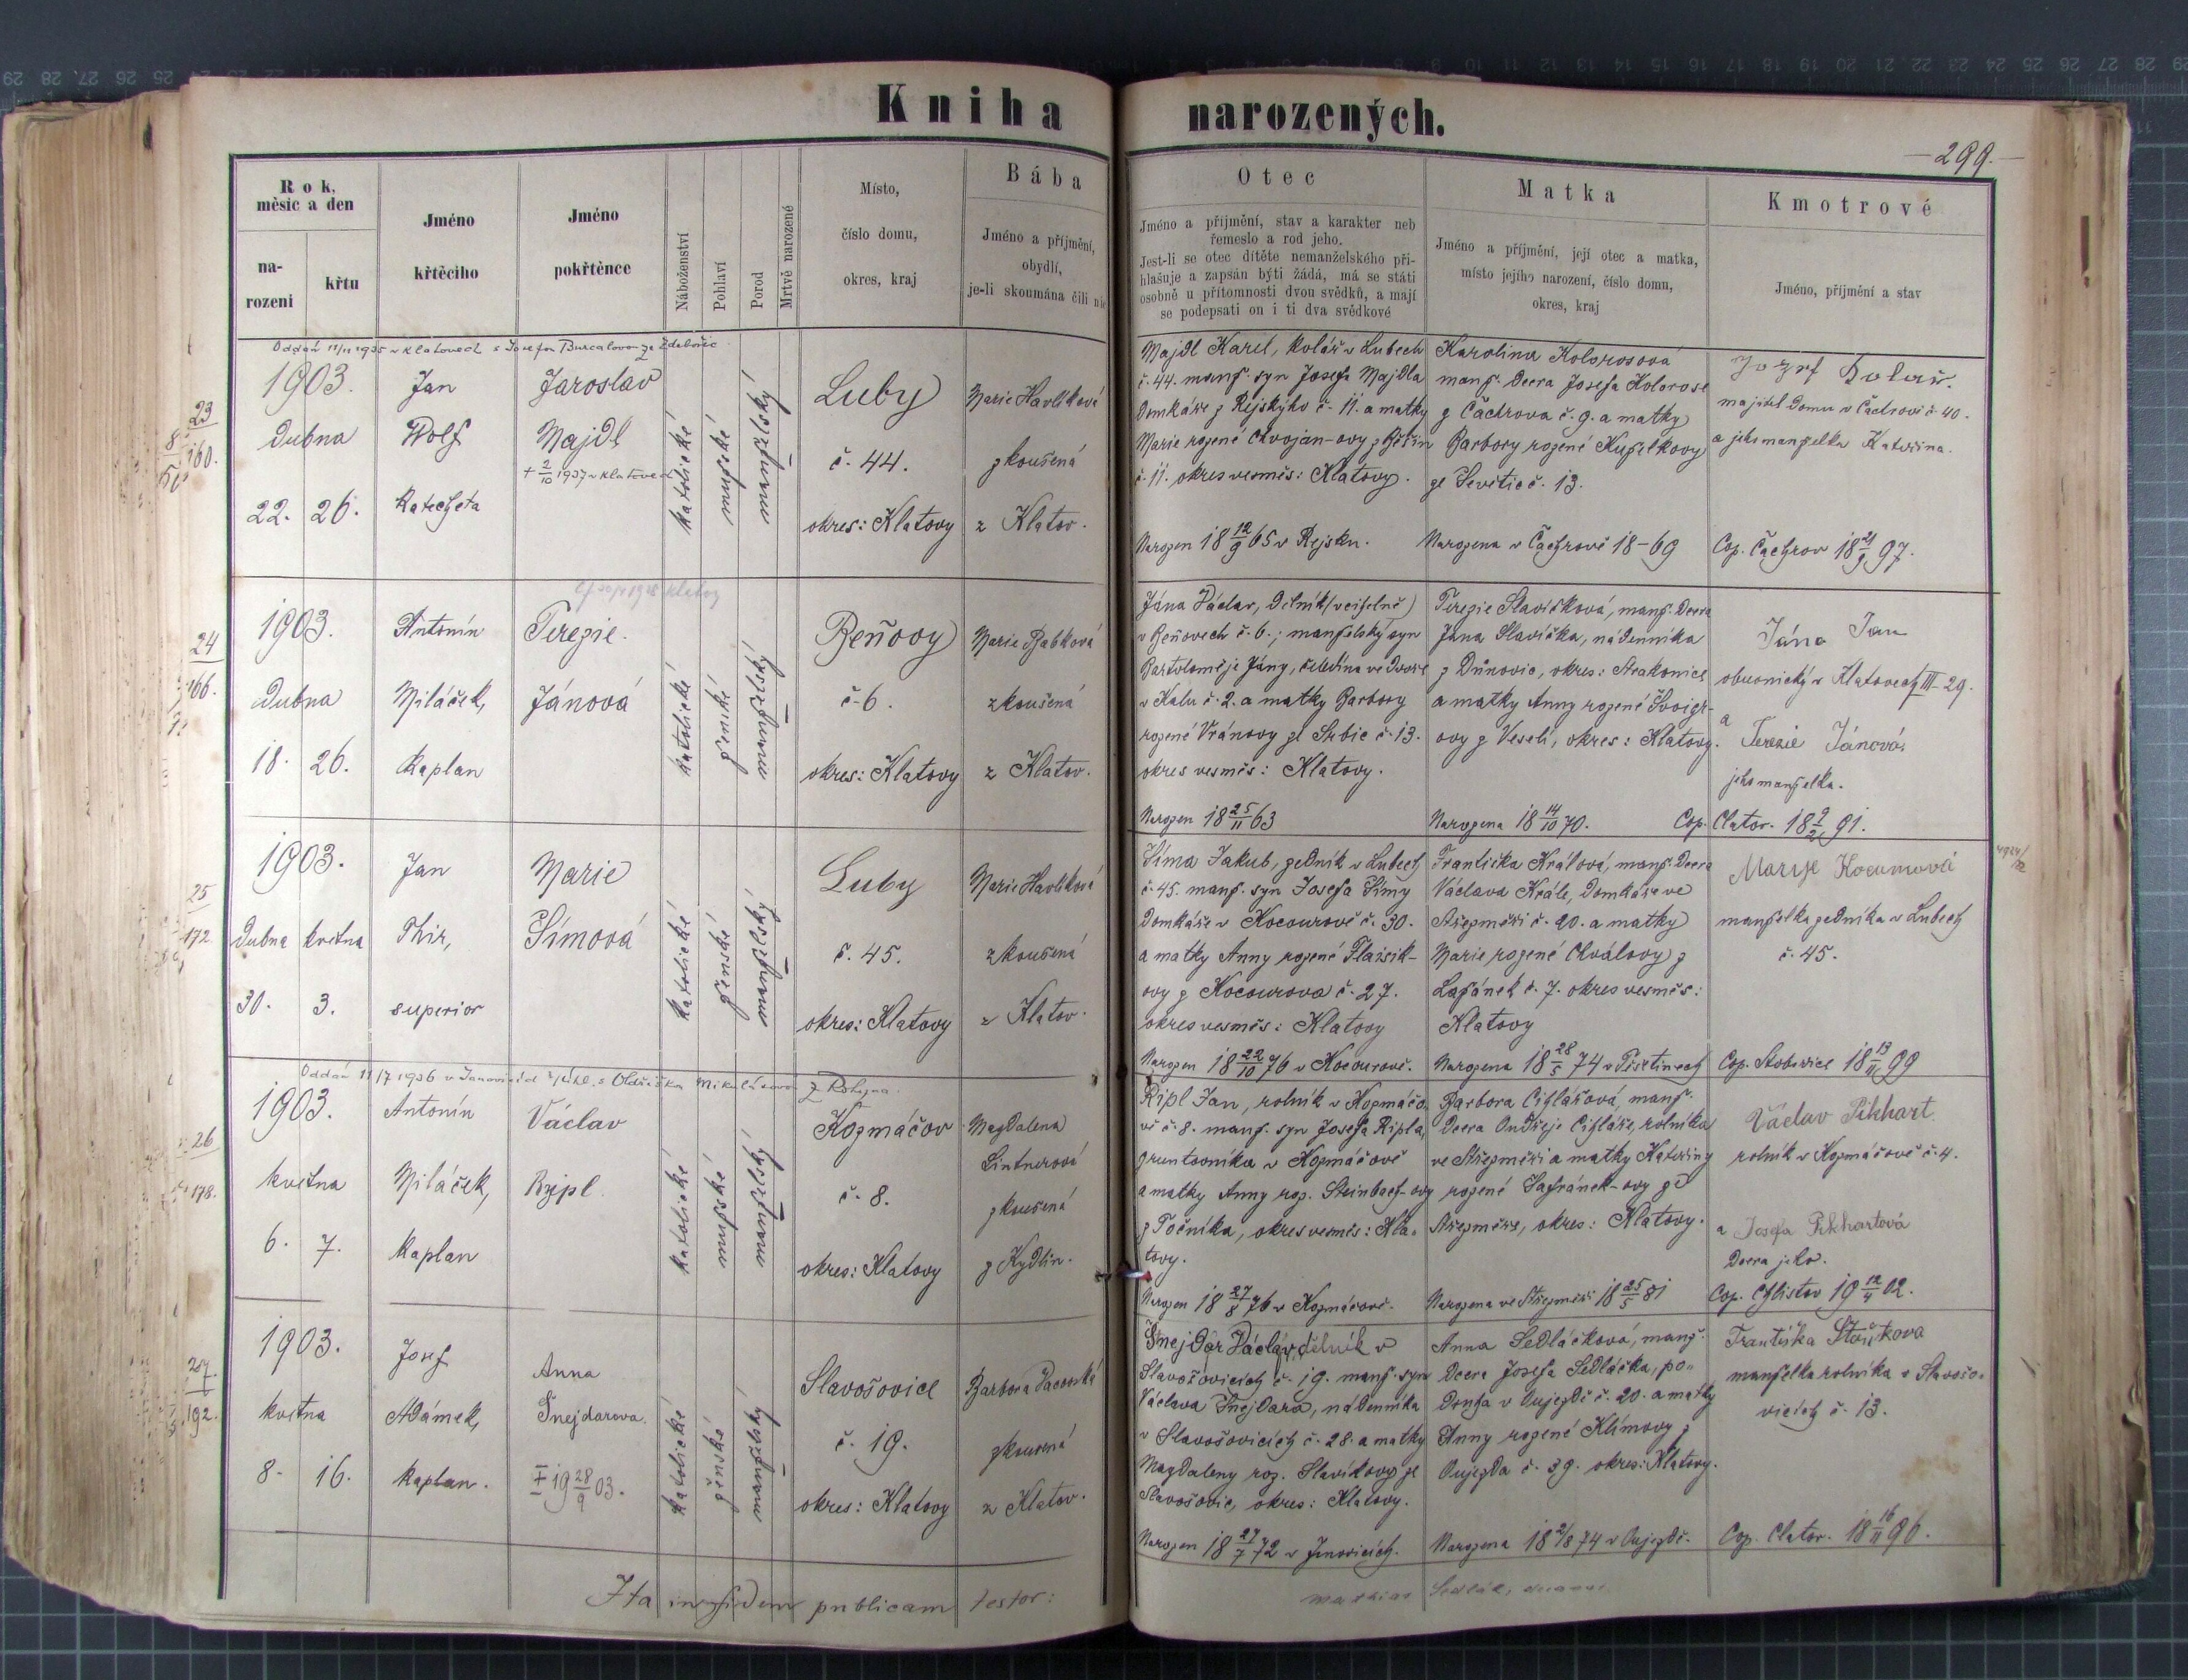 Kniha narozených.
— 299. —
Rok, měsíc a den
na-rození
křtu
Jméno křtěcího
Jméno pokřtěnce
Náboženství
Pohlaví
Porod
Mrtvě narozené
Místo, číslo domu, okres, kraj
Bába
Jméno a příjmění, obydlí, je-li skoumána čili nic
Otec
Jméno a příjmění, stav a karakter neb
řemeslo a rod jeho.
Jest-li se otec dítěte nemanželského při-
hlašuje a zapsán býti žádá, má se státi
osobně u přítomnosti dvou svědků, a mají
se podepsati on i ti dva svědkové
Matka
Jméno a příjmění, její otec a matka,
místo jejího narození, číslo domu,
okres, kraj
Kmotrové
Jméno, příjmění a stav
23
160.
Oddán 11/11 1935 v Klatovech s Josefou
1903.
Dubna
22. 26.
Jan
Wolf
Katecheta
Jaroslav
Majdl
+ 2/10 1937 v Klatovech
katolické
mužské
manželský
Luby
č. 44.
okres: Klatovy
Marie Havlíková
zkoušená
z Klatov.
Majdl Karel, kolář v Lubech
č. 44. manž. syn Josefa Majdla
Domkáře z Rejskýho č. 11. a matky
Marie rozené Chvojan-ovy z
č. 11. okres vesměs: Klatovy.
Narozen 18 12/9 65 v Rejsku.
Karolina Kolorosová
manž. Dcera Josefa Kolorose
z Čachrova č. 9. a matky
Barbory rozené
č. 13.
Narozena v Čachrově 18-69
Jozef Kolař.
majitel Domu v Čachrově č. 40.
a jeho manželka Kateřina.
Cop. Čachrov 18 97.
24
166.
1903.
Dubna
18. 26.
Antonín
Miláček,
Kaplan
Terezie.
Jánová
katolické
ženské
manželský
Beňovy
č. 6.
okres: Klatovy
Marie Babková
zkoušená
z Klatov.
Jána Václav, Dělník (v cihelně)
v Beňovech č. 6.; manželský syn
Bartoloměje Jány, čeledína ve Dvoře
v Kalu č. 2. a matky Barbory
rozené Vránovy ze Srbic č. 13.
okres vesměs: Klatovy.
Narozen 18 25/11 63
Terezie Slavíčková, manž. Dcera
Jana Slavíčka, nádenníka
z Důnovic, okres: Strakonice
a matky Anny rozené
ovy z Veselí, okres: Klatovy.
Narozena 18 14/10 70.
Jána Jan
obuvnický v Klatovech III-29.
a
Terezie Jánová
jeho manželka.
Cop. Clatov. 18 9/2 91.
25
172
1903.
Dubna května
30. 3.
Jan
Thir,
superior
Marie
Šímová
katolické
ženské
manželský
Luby
č. 45.
okres: Klatovy
Marie Havlíková
zkoušená
z Klatov.
Šíma Jakub, zedník v Lubech
č. 45. manž. syn Josefa Šímy
Domkáře v Kocourově č. 30.
a matky Anny rozené
ovy z Kocourova č. 27.
okres vesměs: Klatovy
Narozen 18 22/10 76 v Kocourově.
Františka Králová, manž. Dcera
Václava Krále, Domkáře ve
Střezměři č. 20. a matky
Marie rozené Chválovy z
Lažánek č. 7. okres vesměs:
Klatovy
Narozena 18 28/5 74 v Píšetinech
Marie Kocumová
manželka zedníka v Lubech
č. 45.
Cop. Stobořice 18 13/11 99
26
178.
Oddán 11/7 1936 v
1903.
května
6. 7.
Antonín
Miláček,
Kaplan
Václav
Ripl
katolické
mužské
manželský
Kozmáčov
č. 8.
okres: Klatovy
Magdalena
Lintnerová
zkoušená
z Kydlin.
Ripl Jan, rolník v Kozmáčo-
vě č. 8. manž. syn Josefa Ripla,
gruntovníka v Kozmáčově
a matky Anny roz. Steinbach-ovy
z Točníka, okres vesměs: Kla-
tovy.
Narozen 18 27/8 76 v Kozmáčově.
Barbora Cihlářová, manž.
Dcera Ondřeje Cihláře, rolníka
ve Střezměři a matky Kateřiny
rozené Šafránek-ovy ze
Střezměře, okres: Klatovy.
Narozena ve Střezměři 18 25/5 81
Václav Pikhart
rolník v Kozmáčově č. 4.
a Josefa Pikhartová
Dcera jeho.
Cop. Chlistov 19 12/4 02.
27.
192.
1903.
května
8. 16.
Josef
Adámek,
Kaplan.
Anna
Šnejdarova.
† 19 28/9 03.
katolické
ženské
manželský
Slavošovice
č. 19.
okres: Klatovy
Barbora Pacovská
zkoušená
z Klatov.
Šnejdar Václav, dělník v
Slavošovicích č. 19. manž. syn
Václava Šnejdara, nádenníka
v Slavošovicích č. 28. a matky
Magdaleny roz. Slavíkovy ze
Slavošovic, okres: Klatovy.
Narozen 18 27/7 72 v
Anna Sedláčková, manž.
Dcera Josefa Sedláčka, po-
Družha v Oujezdě č. 20. a matky
Anny rozené Klímovy z
Oujezda č. 39. okres: Klatovy.
Narozena 18 2/8 74 v Oujezdě.
Františka
manželka rolníka v Slavošo-
vicích č. 13.
Cop. Clatov. 18 16/11 96.
Ita in fidem publicam testor:
Mathias Sedlák,